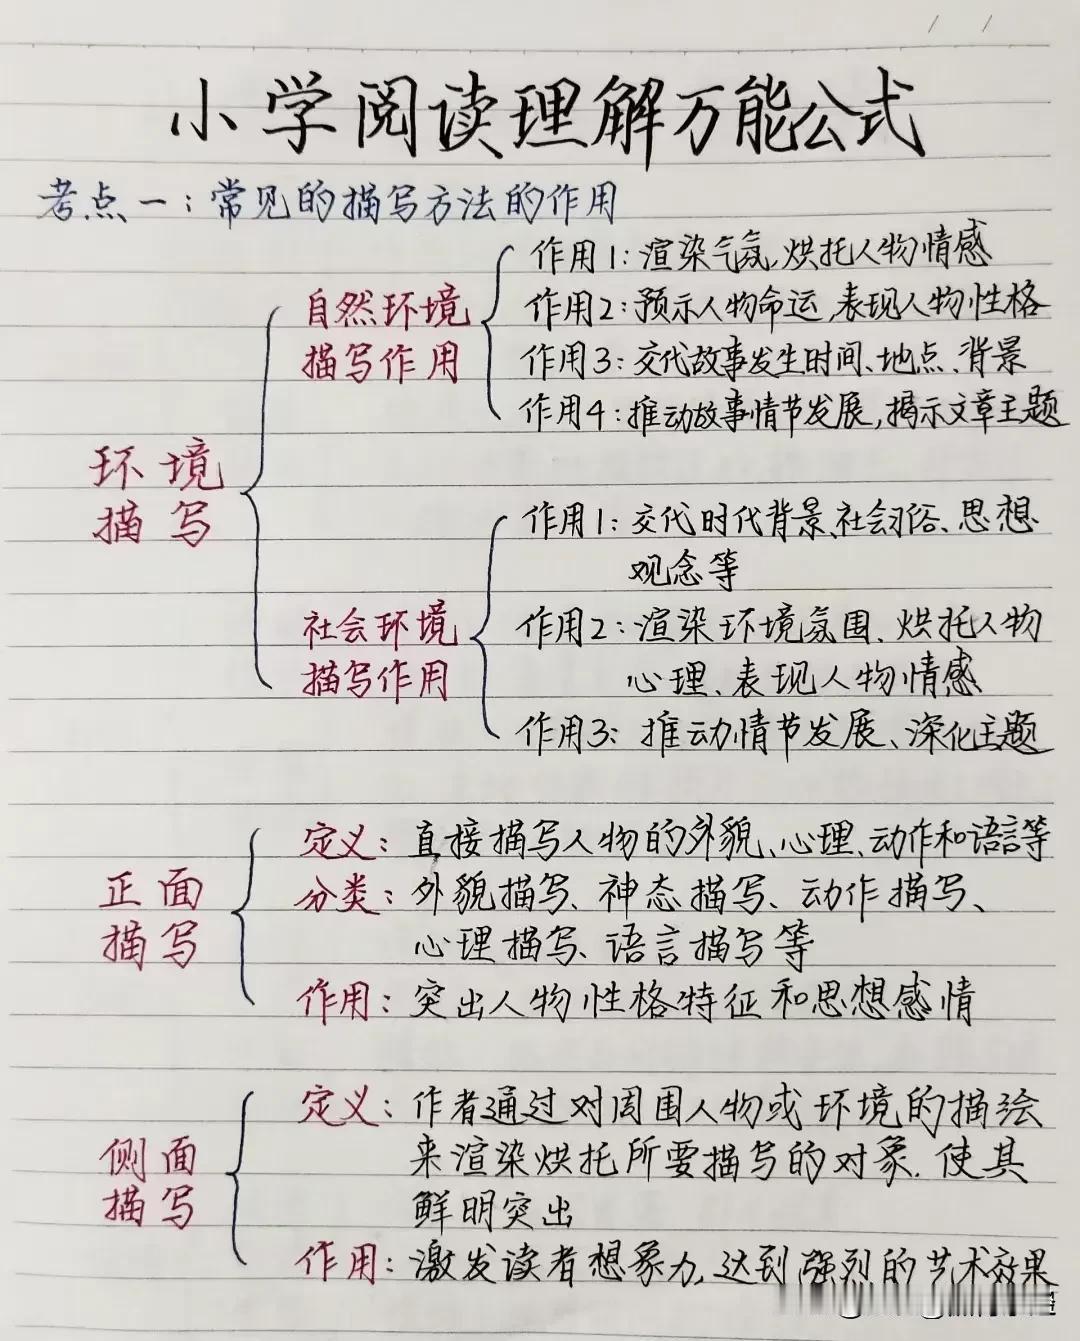 小学阅读理解万能公式
考点一：常见的描写方法的作用
环境
描写
自然环境
描写作用
作用1：渲染气氛,烘托人物情感
作用2：预示人物命运,表现人物性格
作用3：交代故事发生时间、地点、背景
作用4：推动故事情节发展,揭示文章主题
社会环境
描写作用
作用1：交代时代背景、社会习俗、思想
观念等
作用2：渲染环境氛围、烘托人物
心理、表现人物情感
作用3：推动情节发展、深化主题
正面
描写
定义：直接描写人物的外貌、心理、动作和语言等
分类：外貌描写、神态描写、动作描写、
心理描写、语言描写等
作用：突出人物性格特征和思想感情
侧面
描写
定义：作者通过对周围人物或环境的描绘
来渲染烘托所要描写的对象.使其
鲜明突出
作用：激发读者想象力,达到强烈的艺术效果